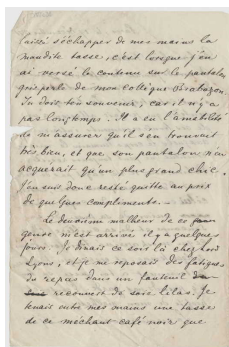 laissé s'échapper de mes mains la
maudite tasse, c'est lorsque j'en
ai versé le contenu sur le pantalon
gris perle de mon collègue
Tu dois t'en souvenir, car il n'y a
pas longtemps. Il a eu l'amabilité
de m'assurer qu'il s'en trouvait
très bien, et que son pantalon n'en
acquerait qu'un plus grand chic.
J'en suis donc resté quitte au prix
de quelques compliments. —
Le deuxième malheur de ce
genre m'est arrivé il y a quelques
jours. Je dînais ce soir là chez
Lyons, et je me reposais des fatigues
du repas dans un fauteuil
recouvert de soie lilas. Je
tenais entre mes mains une tasse
de ce méchant café noir que